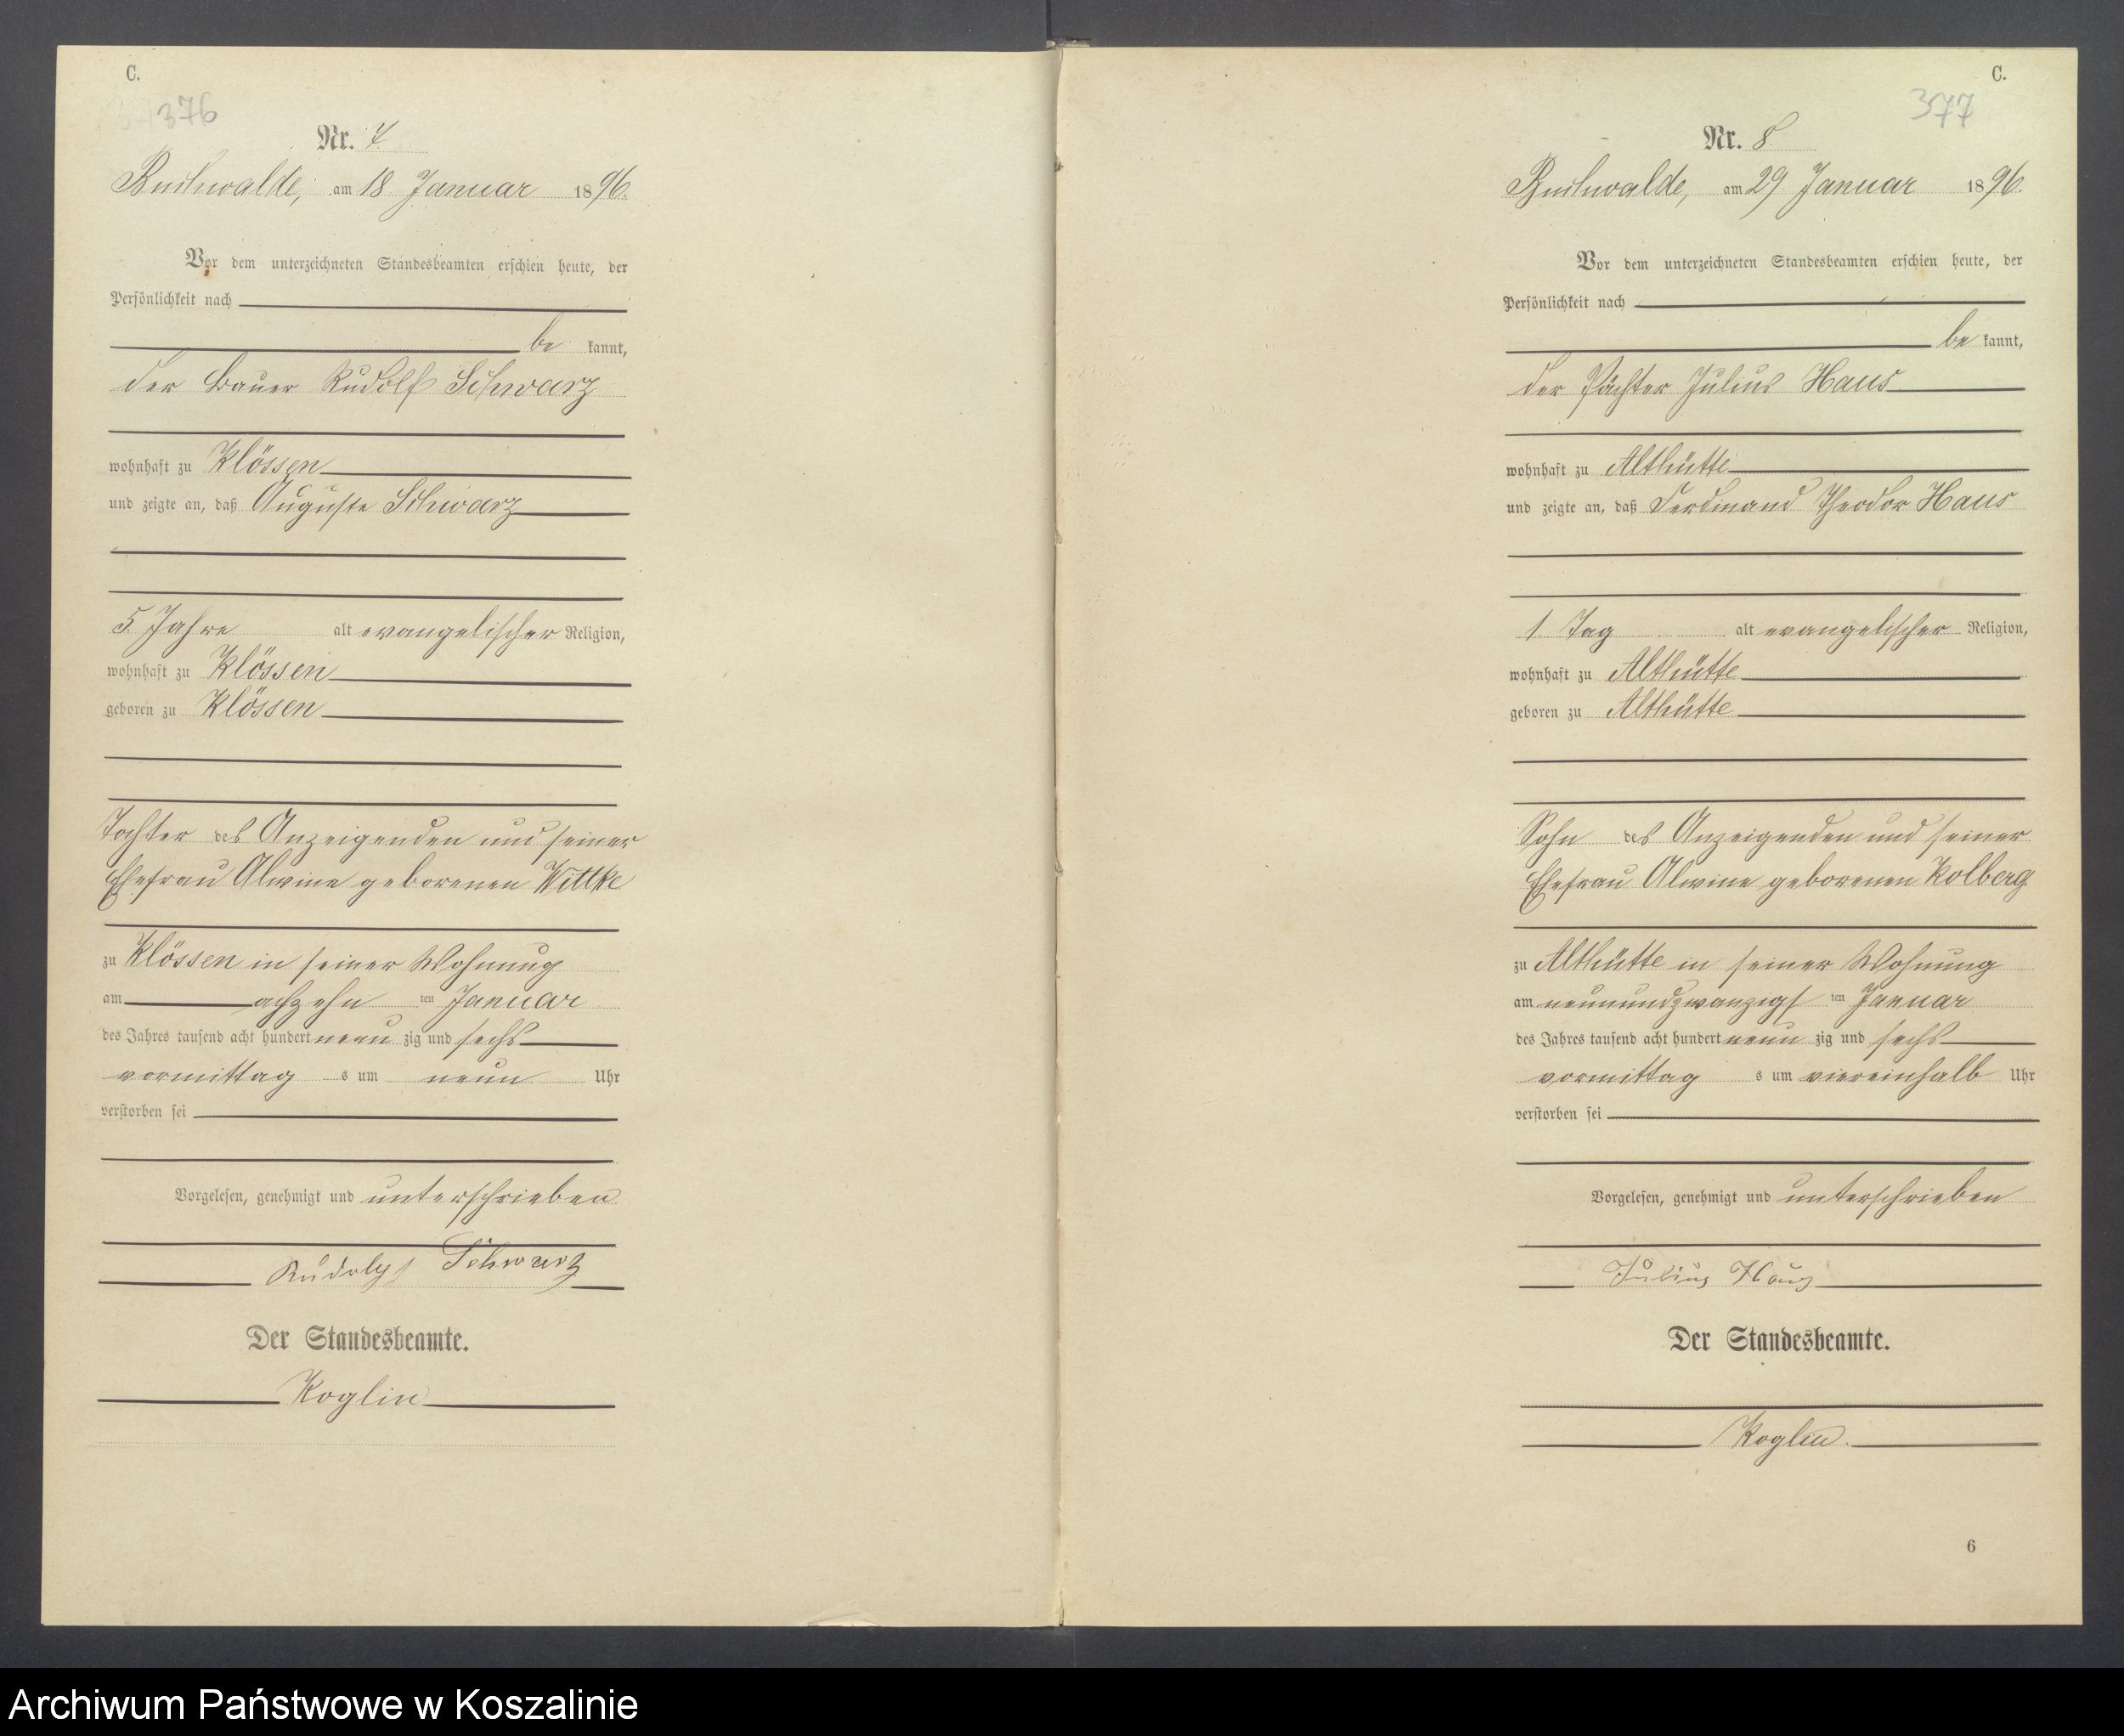 C.
376
Nr. 7.
Buchwalde, am 18 Januar 1896.
Vor dem unterzeichneten Standesbeamten erschien heute, der
Persönlichkeit nach
be kannt,
der Bauer Rudolf Schwarz
wohnhaft zu Klössen
und zeigte an, daß Auguste Schwarz
5 Jahre alt evangelischer Religion,
wohnhaft zu Klössen
geboren zu Klössen
Tochter des Anzeigenden und seiner
Ehefrau Alwine geborenen Wittke
zu Klössen in seiner Wohnung
am achzehn ten Januar
des Jahres tausend acht hundert neun zig und sechs
vormittag s um neun Uhr
verstorben sei
Vorgelesen, genehmigt und unterschrieben
Rudolf Schwarz
Der Standesbeamte.
Koglin
C.
377
Nr. 8
Buchwalde, am 29 Januar 1896.
Vor dem unterzeichneten Standesbeamten erschien heute, der
Persönlichkeit nach
be kannt,
der Pächter Julius Haus
wohnhaft zu Althütte
und zeigte an, daß Ferdinand Theodor Haus
1 Tag alt evangelischer Religion,
wohnhaft zu Althütte
geboren zu Althütte
Sohn des Anzeigenden und seiner
Ehefrau Alwine geborenen Kolberg
zu Althütte in seiner Wohnung
am neunundzwanzigs ten Januar
des Jahres tausend acht hundert neun zig und sechs
vormittag s um viereinhalb Uhr
verstorben sei
Vorgelesen, genehmigt und unterschrieben
Julius Haus
Der Standesbeamte.
Koglin.
6
Archiwum Państwowe w Koszalinie